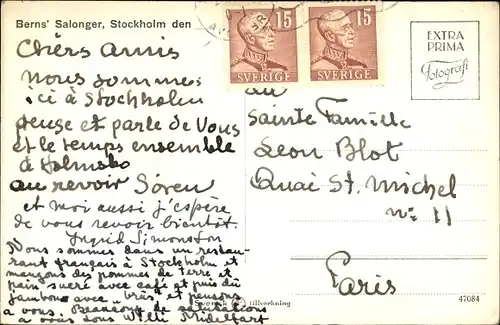 Berns' Salonger, Stockholm den
Chèrs amis
nous sommes
ici à Stockholm
et parle de Vous
et le temps ensemble
à Holmsbo
au revoir Sören
et moi aussi j'espère
de vous revoir bientôt.
Ingrid Simonsson
Nous sommes dans un restau-
rant français à Stockholm et
mangons des pommes de terre et
pain sucré avec café et puis du
jambon avec "brûs" et pensons
a vous. Beaucoup de salutations
a vous sous Willi Midelfart
15
15
SVERIGE
SVERIGE
EXTRA
PRIMA
Fotografi
Sainte Famille
Leon Blot
Quai St. Michel
№ 11
Paris
Svensk tillverkning
47084